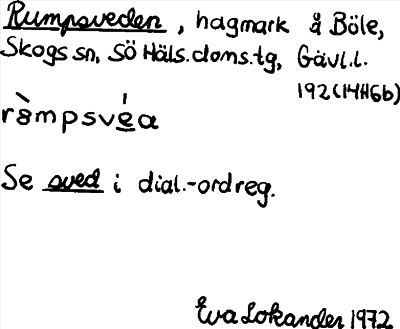 Rumpsveden, hagmark å Böle,
Skogs sn, SÖ Häls. doms.tg, Gävl.l.
192 (14H6b)
rə̀mpsvé̲a
Se sved i dial.-ordreg.
Eva Lokander 1972